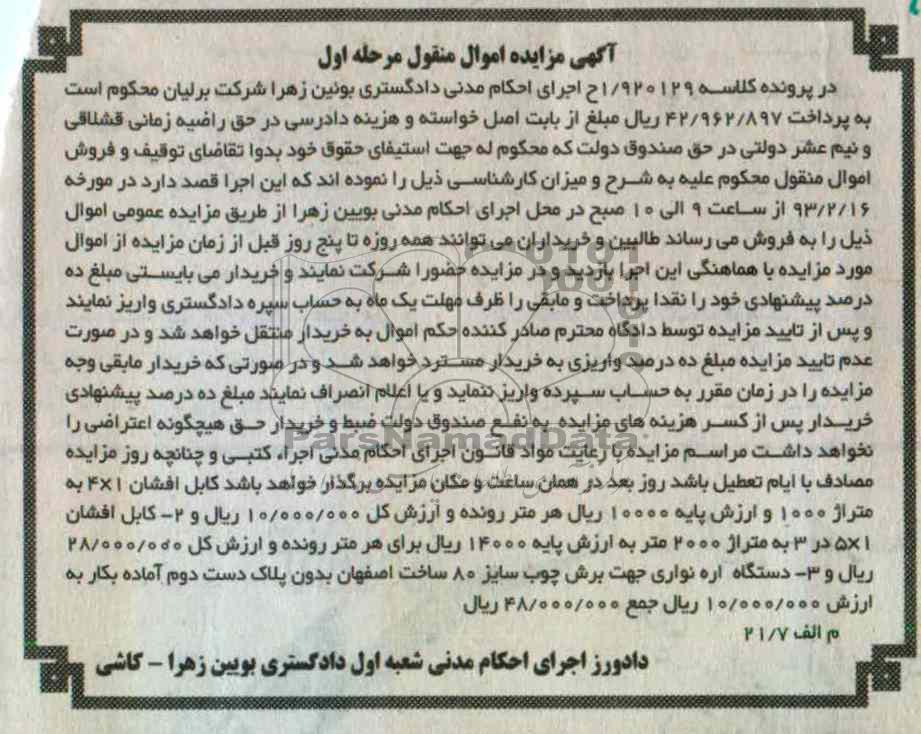 آگهی مزایده اموال منقول مرحله اول
در پرونده کلاسه ۱/۹۲۰۱۲۹ح اجرای احکام مدنی دادگستری بوئین زهرا شرکت برلیان محکوم است
به پرداخت ۴۲/۹۶۲/۸۹۷ ریال مبلغ از بابت اصل خواسته و هزینه دادرسی در حق راضیه زمانی قشلاقی
و نیم عشر دولتی در حق صندوق دولت که محکوم له جهت استیفای حقوق خود بدوا تقاضای توقیف و فروش
اموال منقول محکوم علیه به شرح و میزان کارشناسی ذیل را نموده اند که این اجرا قصد دارد در مورخه
۹۳/۲/۱۶ از ساعت ۹ الی ۱۰ صبح در محل اجرای احکام مدنی بویین زهرا از طریق مزایده عمومی اموال
ذیل را به فروش می رساند طالبین و خریداران می توانند همه روزه تا پنج روز قبل از زمان مزایده از اموال
مورد مزایده با هماهنگی این اجرا بازدید و در مزایده حضورا شرکت نمایند و خریدار می بایستی مبلغ ده
درصد پیشنهادی خود را نقدا پرداخت و مابقی را ظرف مهلت یک ماه به حساب سپره دادگستری واریز نمایند
و پس از تایید مزایده توسط دادگاه محترم صادر کننده حکم اموال به خریدار منتقل خواهد شد و در صورت
عدم تایید مزایده مبلغ ده درصد واریزی به خریدار مسترد خواهد شد و در صورتی که خریدار مابقی وجه
مزایده را در زمان مقرر به حساب سپرده واریز ننماید و یا اعلام انصراف نمایند مبلغ ده درصد پیشنهادی
خریدار پس از کسر هزینه های مزایده به نفع صندوق دولت ضبط و خریدار حق هیچگونه اعتراضی را
نخواهد داشت مراسم مزایده با رعایت مواد قانون اجرای احکام مدنی اجرا، کتبی و چنانچه روز مزایده
مصادف با ایام تعطیل باشد روز بعد در همان ساعت و مکان مزایده برگذار خواهد باشد کابل افشان ۴×۱ به
متراژ ۱۰۰۰ و ارزش پایه ۱۰۰۰۰ ریال هر متر رونده و ارزش کل ۱۰/۰۰۰/۰۰۰ ریال و ۲- کابل افشان
۵×۱ در ۳ به متراژ ۲۰۰۰ متر به ارزش پایه ۱۴۰۰۰ ریال برای هر متر رونده و ارزش کل ۲۸/۰۰۰/۰۰۰
ریال و ۳- دستگاه اره نواری جهت برش چوب سایز ۸۰ ساخت اصفهان بدون پلاک دست دوم آماده بکار به
ارزش ۱۰/۰۰۰/۰۰۰ ریال جمع ۴۸/۰۰۰/۰۰۰ ریال
م الف ۲۱/۷
دادورز اجرای احکام مدنی شعبه اول دادگستری بویین زهرا - کاشی
ParsNamadData